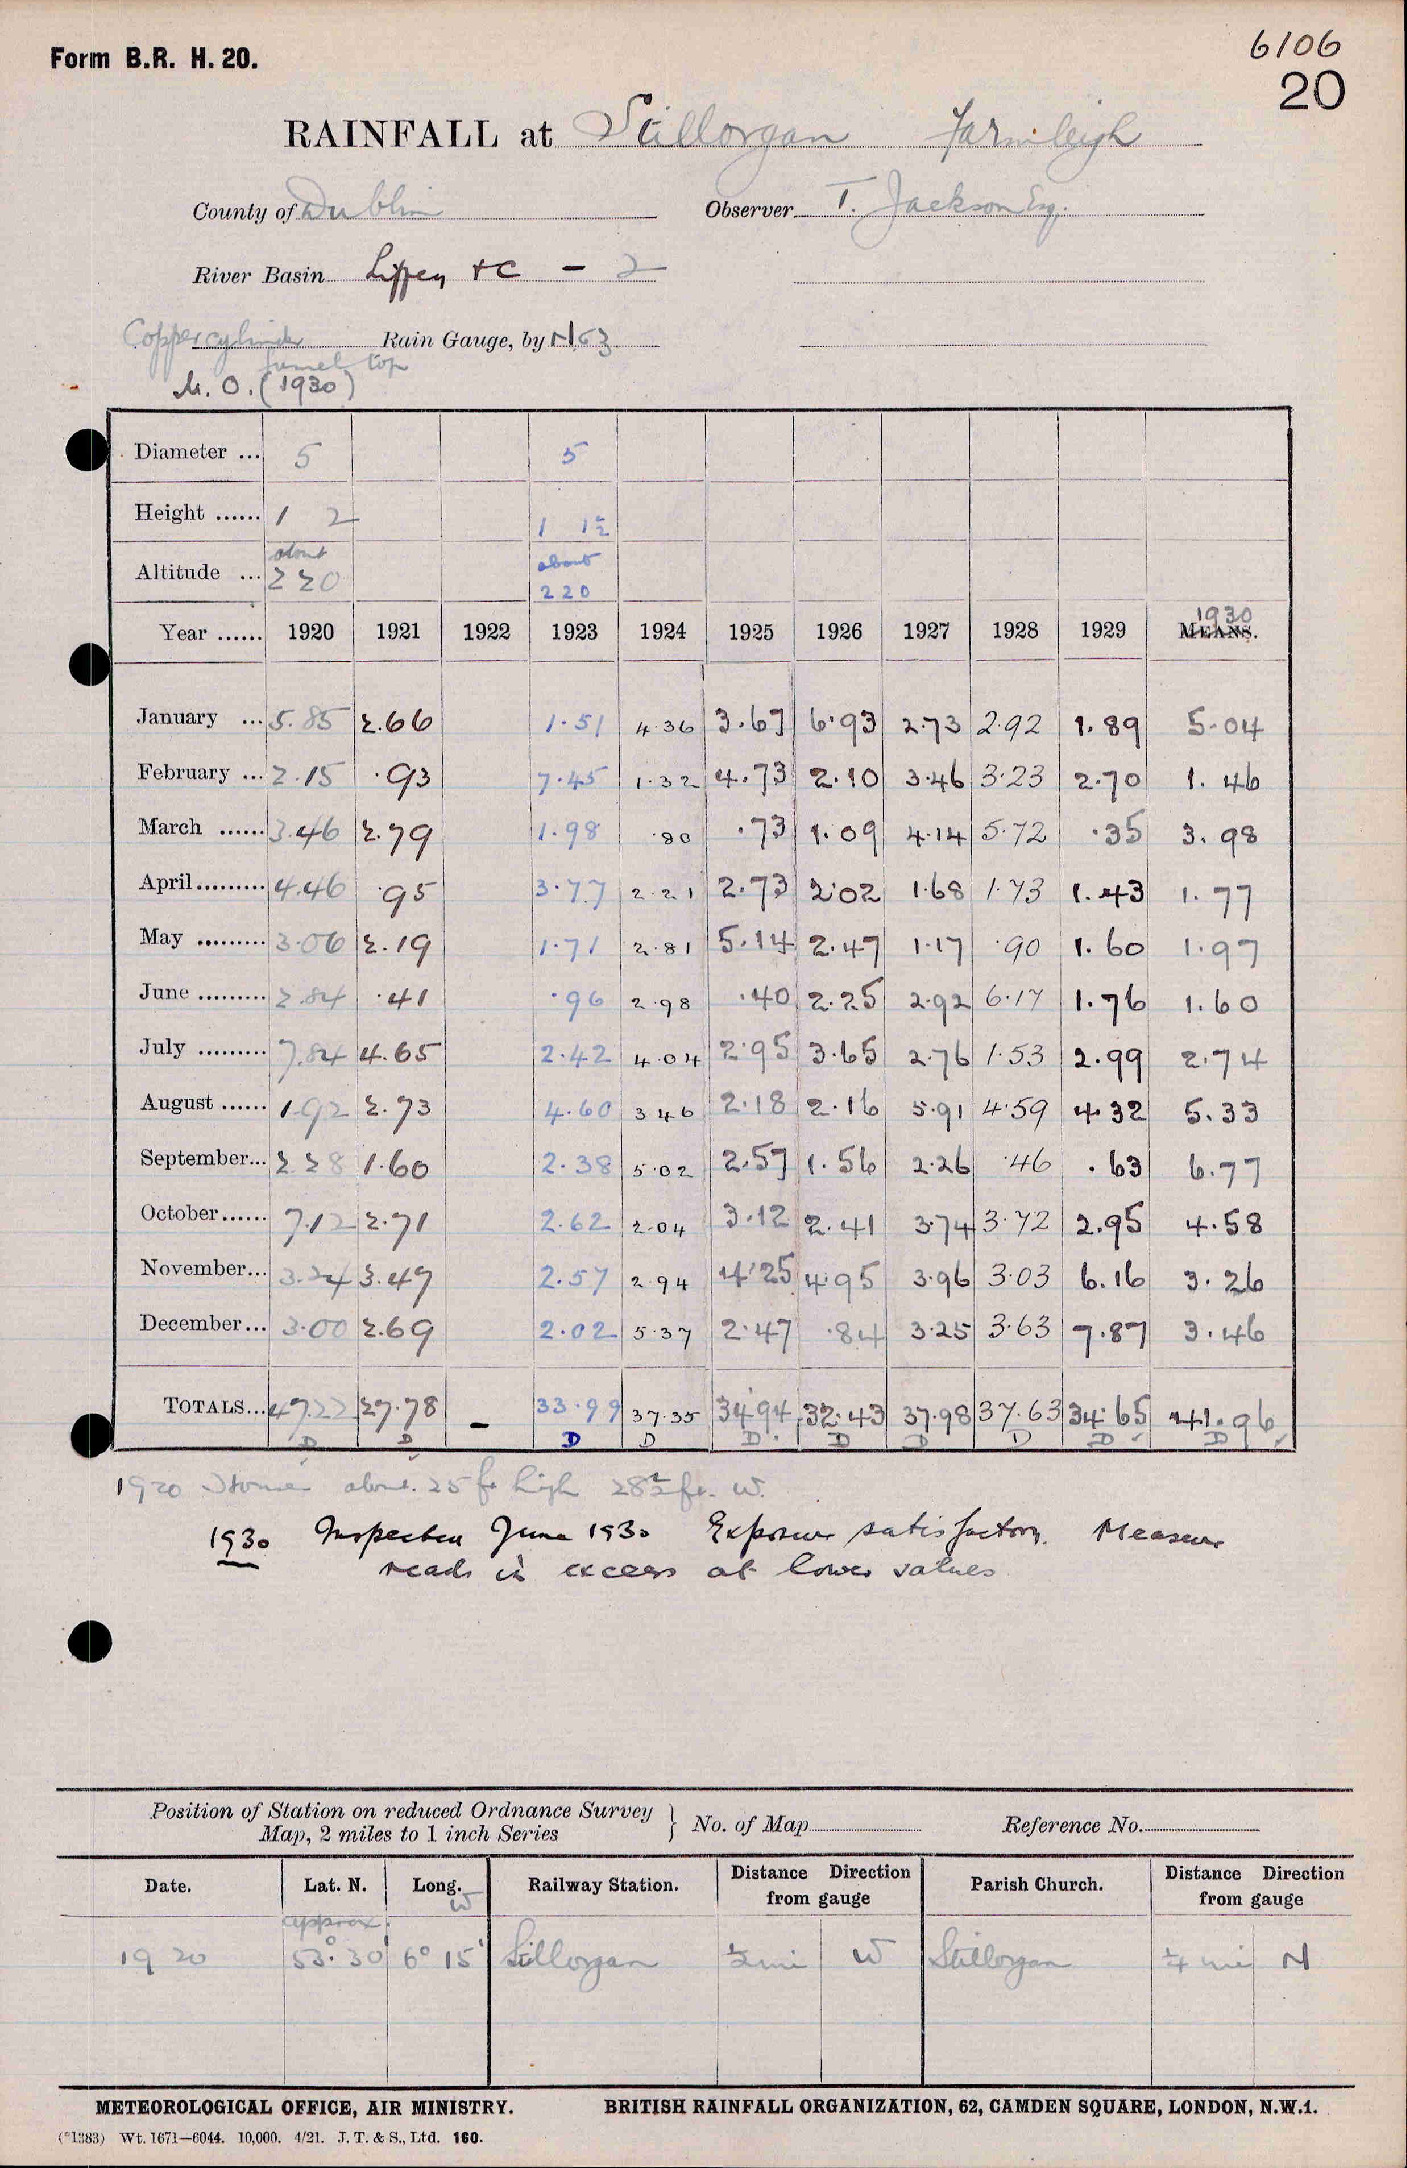 Form B.R. H. 20.
6106
20
RAINFALL at Stillorgan Farmleigh
County of Dublin Observer T. Jackson Esq.
River Basin Liffey &c - 2
Copper cylinder Rain Gauge, by N&Z
funnel top
M. O. (1930)
Diameter ... 5 5
Height ...... 1 2 1 1½
Altitude ... about 220 about 220
Year ...... 1920 1921 1922 1923 1924 1925 1926 1927 1928 1929 MEANS. 1930
January ... 5.85 2.66 1.51 4.36 3.67 6.93 2.73 2.92 1.89 5.04
February ... 2.15 .93 7.45 1.32 4.73 2.10 3.46 3.23 2.70 1.46
March ...... 3.46 2.79 1.98 .80 .73 1.09 4.14 5.72 .35 3.98
April......... 4.46 .95 3.77 2.21 2.73 2.02 1.68 1.73 1.43 1.77
May ......... 3.06 2.19 1.71 2.81 5.14 2.47 1.17 .90 1.60 1.97
June ......... 2.84 .41 .96 2.98 .40 2.25 2.92 6.17 1.76 1.60
July ......... 7.84 4.65 2.42 4.04 2.95 3.65 2.76 1.53 2.99 2.74
August ...... 1.92 2.73 4.60 3 46 2.18 2.16 5.91 4.59 4.32 5.33
September... 2.28 1.60 2.38 5.02 2.57 1.56 2.26 .46 .63 6.77
October...... 7.12 2.71 2.62 2.04 3.12 2.41 3.74 3.72 2.95 4.58
November... 3.24 3.47 2.57 2.94 4.25 4.95 3.96 3.03 6.16 3.26
December... 3.00 2.69 2.02 5.37 2.47 .84 3.25 3.63 7.87 3.46
TOTALS... 47.22 27.78 - 33.99 37.35 34.94 32.43 37.98 37.63 34.65 41.96
D D D D D D D D D D
1920 House about 25 ft high 28½ ft. W.
1930 Inspected June 1930 Exposure satisfactory. Measure
reads in excess at lower values
Position of Station on reduced Ordnance Survey
Map, 2 miles to 1 inch Series } No. of Map Reference No.
Date. Lat. N. Long. W Railway Station. Distance Direction from gauge Parish Church. Distance Direction from gauge
approx.
1920 53° 30' 6° 15' Stillorgan ½ mi W Stillorgan ¼ mi N
METEOROLOGICAL OFFICE, AIR MINISTRY. BRITISH RAINFALL ORGANIZATION, 62, CAMDEN SQUARE, LONDON, N.W.1.
(*1383) Wt. 1671—6044. 10,000. 4/21. J. T. & S., Ltd. 160.